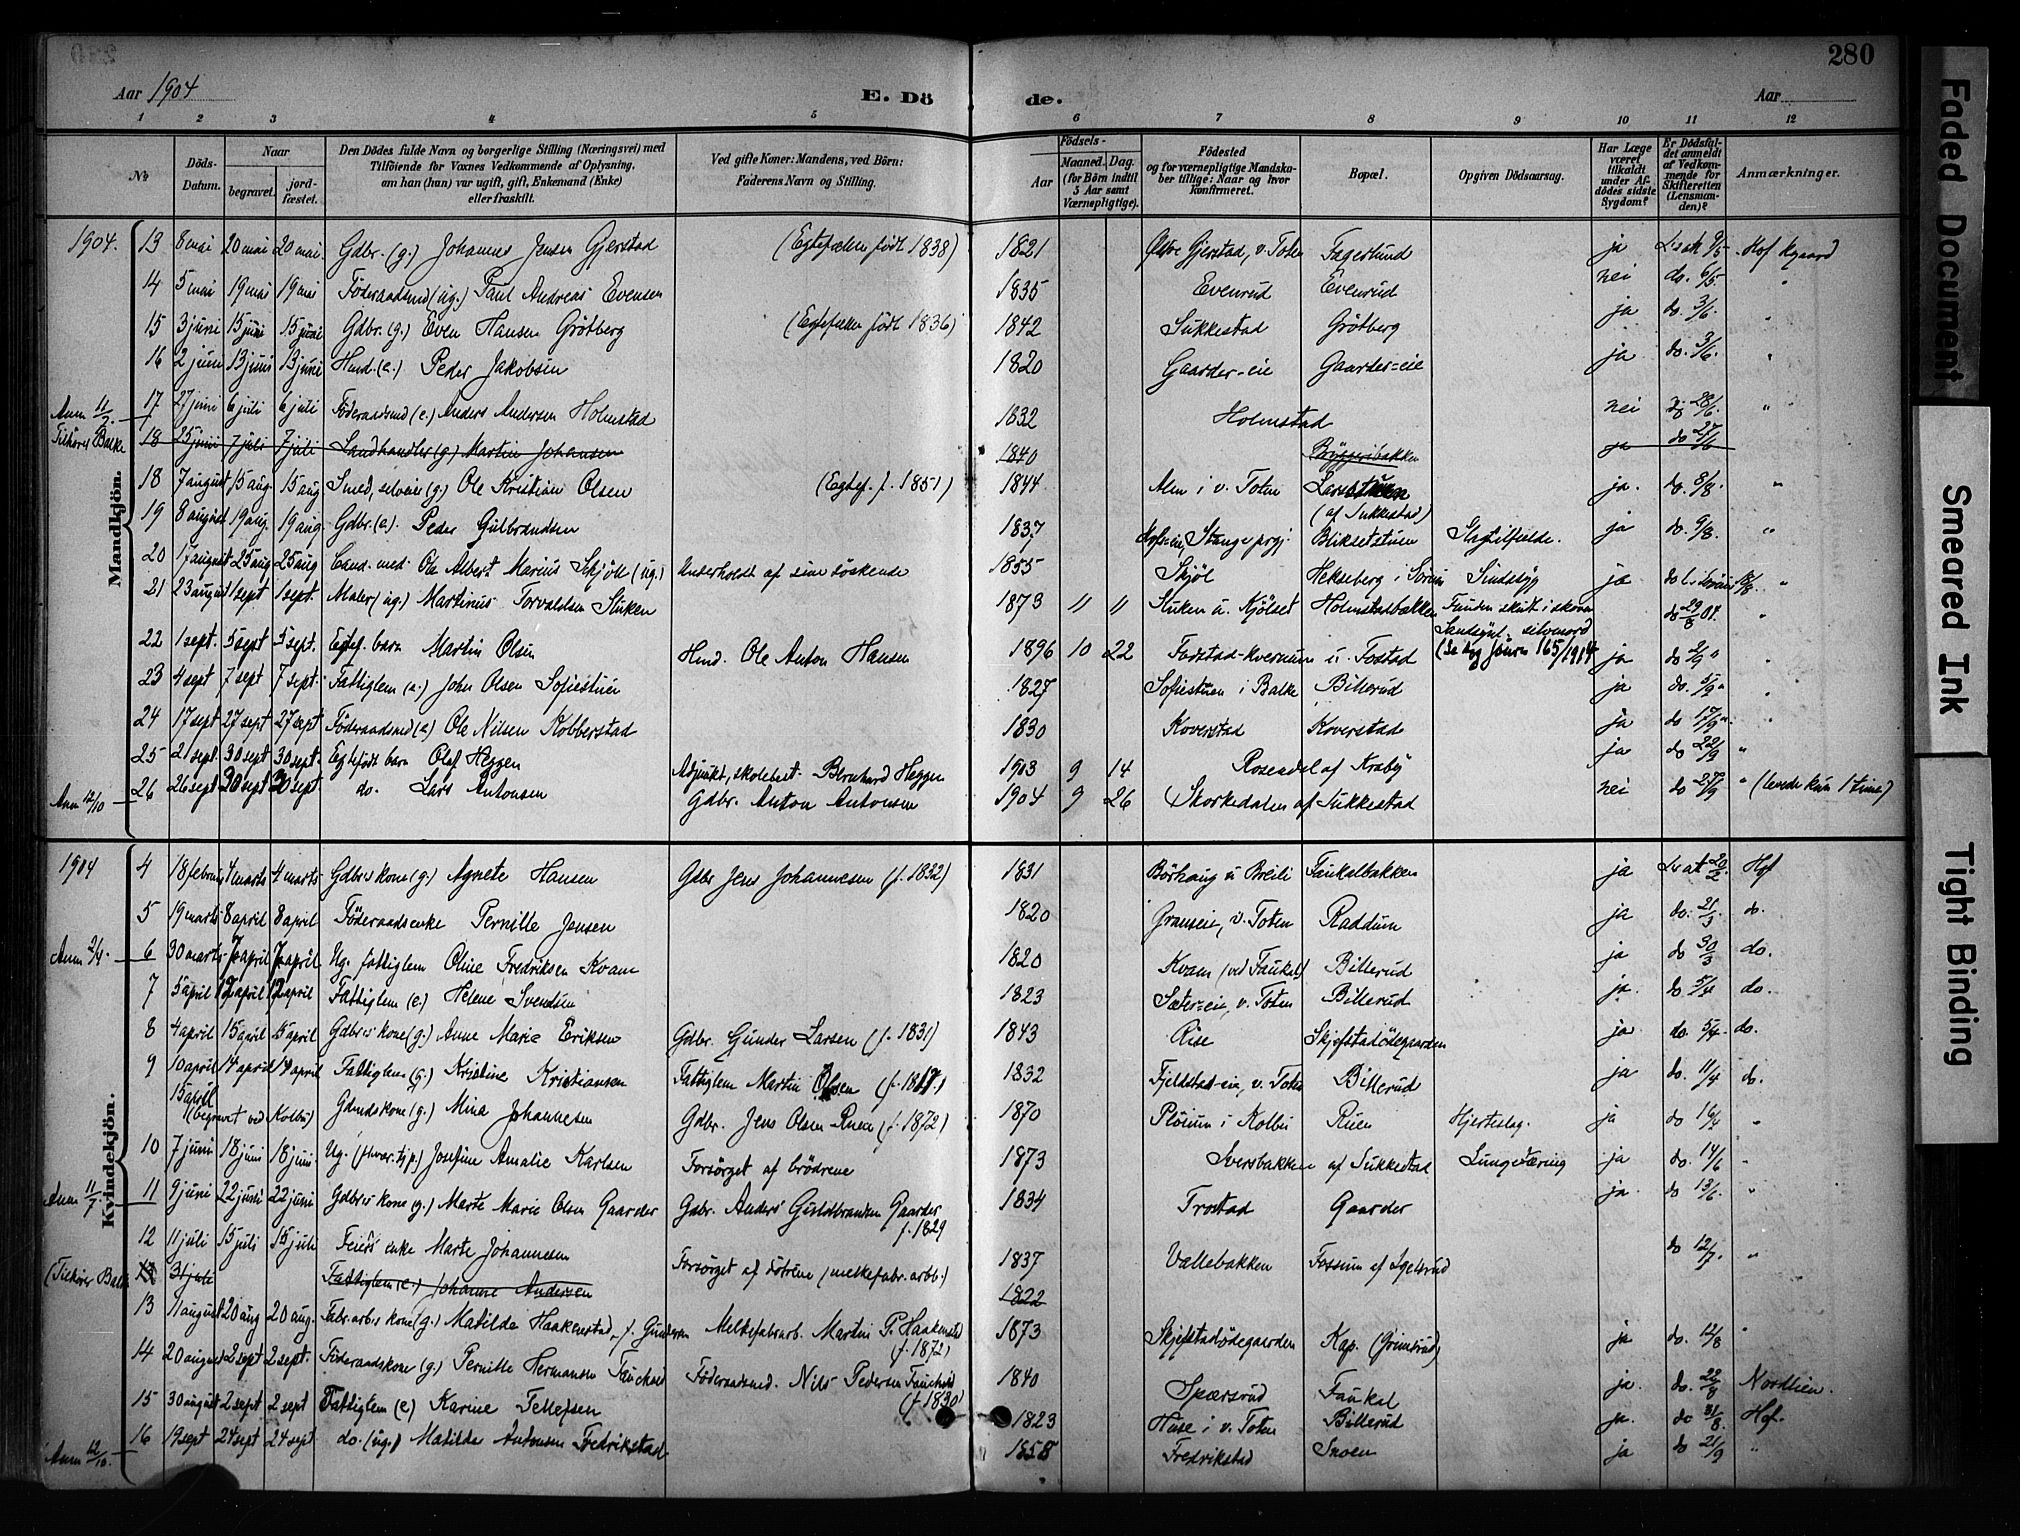 280
Aar 1904
E. Dö de.
Aar
1 2 3 4 5 6 7 8 9 10 11 12
No
Döds-Datum.
Naar begravet. jord-fæstet.
Den Dödes fulde Navn og borgerlige Stilling (Næringsvei) med Tilföiende for Voxnes Vedkommende af Oplysning, om han (hun) var ugift, gift, Enkemand (Enke) eller fraskilt.
Ved gifte Koner: Mandens, ved Börn: Faderens Navn og Stilling.
Födsels- Aar Maaned. Dag. (for Börn indtil 5 Aar samt Værnepligtige).
Födested og for værnepligtige Mandska-ber tillige: Naar og hvor Konfirmeret.
Bopæl.
Opgiven Dödsaarsag.
Har Læge været tilkaldt under Af-dödes sidste Sygdom?
Er Dödsfal-det anmeldt af Vedkom-mende for Skifteretten (Lensman-den)?
Anmærkninger.
Mandkjön.
1904. 13 8 mai 20 mai 20 mai. Gdbr. (g.) Johannes Jensen Gjerstad (Egtefælle født 1838) 1821 Østre Gjerstad, v. Toten Fagerlund ja 9/5 Hof kgaard
14 5 mai 19 mai 19 mai Föderaadsmd (ug.) Paul Andreas Evensen 1835 Evenrud Evenrud nei do. 6/5 "
15 3 juni 15 juni 15 juni Gdbr. (g.) Even Hansen Grötberg (Egtefælle født 1836) 1842 Sukkestad Grötberg ja do. 3/6. "
16 2 juni 13 juni 13 juni Husmd. (e.) Peder Jakobsen 1820 Gaarder-eie Gaarder-eie ja do. 3/6. "
Anm 11/7 17 27 juni 6 juli 6 juli Föderaadsmd (e.) Anders Andersen Holmstad 1832 Holmstad nei do 28/6. "
Tilhører Balke 18 25 juni 7 juli 7 juli Landhandler (g.) Martin Johansen 1840 Bryggeribakken ja do 27/6
18 7 august 15 aug. 15 aug Smed, selveier (g.) Ole Kristian Olsen (Egtef. f. 1851) 1844 Alm i v. Toten Larsstuen (af Sukkestad) ja. do. 8/8. "
19 8 august 19 aug. 19 aug Gdbr. (e). Peder Gulbrandsen 1837 Stange prgj. Bliksetstuen Slagtilfælde. ja do 9/8. "
20 17 august 25 aug 25 aug Cand. med. Ole Albert Marius Skjöll (ug.) Underholdt af sine söskende 1855 Skjöl Hekseberg i Sörum Sindssyg ja do 18/8. "
21 23 august 1 sept 1 sept. Maler (ug.) Martinus Torvaldsen Stuken 1873 11 11 Stuken u. Kjölset Holmstadbakken Funden skut i skoven Sandsynl. selvmord (Se dag journ 165/1904 do 29/8 04. "
22 1 sept. 5 sept 5 sept. Egtef. barn Martin Olsen Husmd. Ole Anton Hansen 1896 10 22 Fodstad-kvernum u. Fodstad ja do 2/9 " "
23 4 sept 7 sept 7 sept. Fattiglem (e.) John Olsen Sofiestuen 1827 Sofiestuen i Balke Billerud ja do. 5/9 " "
24 17 sept. 27 sept 27 sept Föderaadsmd (e) Ole Nilsen Kobberstad 1830 Koverstad Koverstad ja do 17/9 ". "
25 21 sept. 30 sept 30 sept. Egtefödt barn Olaf Heggen Adjunkt, skolebest. Bernhard Heggen 1903 9 14 Rosendal af Kraby ja do 22/9 "
Anm 12/10 26 26 sept 30 sept 30 sept do. Lars Antonsen Gdbr. Anton Antonsen 1904 9 26 Skorkedalen af Sukkestad nei do 27/9 " (levede kun 1 time)
Kvindekjön.
1904 4 18 februar 4 marts 4 marts Gdbrs kone (g.) Agnete Hansen Gdbr Jens Johannesen (f. 1832) 1831 Börhaug u Breili Faukalbakken ja 20/2. Hof
5 19 marts 8 april 8 april Föderaadsenke Pernille Jensen 1820 Granseie, v. Toten Raddum ja do. 21/3 do.
Anm 2/4. 6 30 marts 7 april 7 april Ug. fattiglem Oline Fredriksen Kvam 1820 Kvam (ved Faukal) Billerud ja do 30/3 do.
7 5 april 12 april 12 april Fattiglem (e.) Helene Svendsen 1823 Sæter-eie, v. Toten Billerud ja. do 5/4 do.
8 4 april 15 april 15 april Gdbrs kone (g.) Anne Marie Eriksen Gdbr. Gunder Larsen (f. 1831) 1843 Rise Skjefstadödegaarden ja do. 5/4. do.
9 10 april 14 april 14 april Fattiglem (g.) Kristine Kristiansen Fattiglem Martin Olsen 1832 Fjeldstad-eie, v. Toten Billerud ja do. 11/4 do.
15 april (begravet ved Kolbu) Gdmdskone (g.) Mina Johannesen Gdbr. Jens Olsen Ruen (f. 1872) 1870 Plösum i Kolbu Ruen Hjerteslag. ja do 16/4 "
10 7 juni 18 juni 18 juni. Ug. Josefine Amalie Karlsen Forsörget af brödrene 1873 Sversbakken af Sukkestad Lungetæring ja do. 14/6 "
Anm 11/7 11 9 juni 22 juni 22 juni Gdbrs kone (g.) Marte Marie Olsen Gaarder Gdbr. Anders Guldbransen Gaarder f. 1829 1834 Trostad Gaarder ja. do 13/6. "
12 11 juli 15 juli 15 juli Feiers enke Marte Johannesen Forsörget af dötrene (melkefabr. arbb.) 1837 Vallebakken Fossum af Igelsrud do 12/7. "
(Tilhører Balke 31 juli Fattiglem (e.) Johanne Andersen 1822
13 11 august 20 aug 20 aug. Fabr. arbs kone (g.) Matilda Haakenstad, f. Gundersen Melkefabrarb. Martin P. Haakenstad (f. 1872) 1873 Skjefstadödegaarden Kap. (Grimsrud) ja do. 12/8 "
14 20 august 2 sept 2 sept. Föderaadskone (g.) Pernille Hermansen Fauchald Föderaadsmd. Nils Pedersen Fauchald (f. 1830) 1840 Spærsrud Faukal ja. do. 22/8 Nordlien.
15 30 august 2 sept 2 sept Fattiglem (e) Karine Tellefsen 1823 Huse i v. Toten Billerud ja. do 31/8. Hof.
Anm 12/10. 16 19 sept 24 sept 24 sept do. (ug.) Matilde Antonsen Fredrikstad 1858 Fredrikstad Snoen ja do 21/9 "
Faded Document
Smeared Ink
Tight Binding